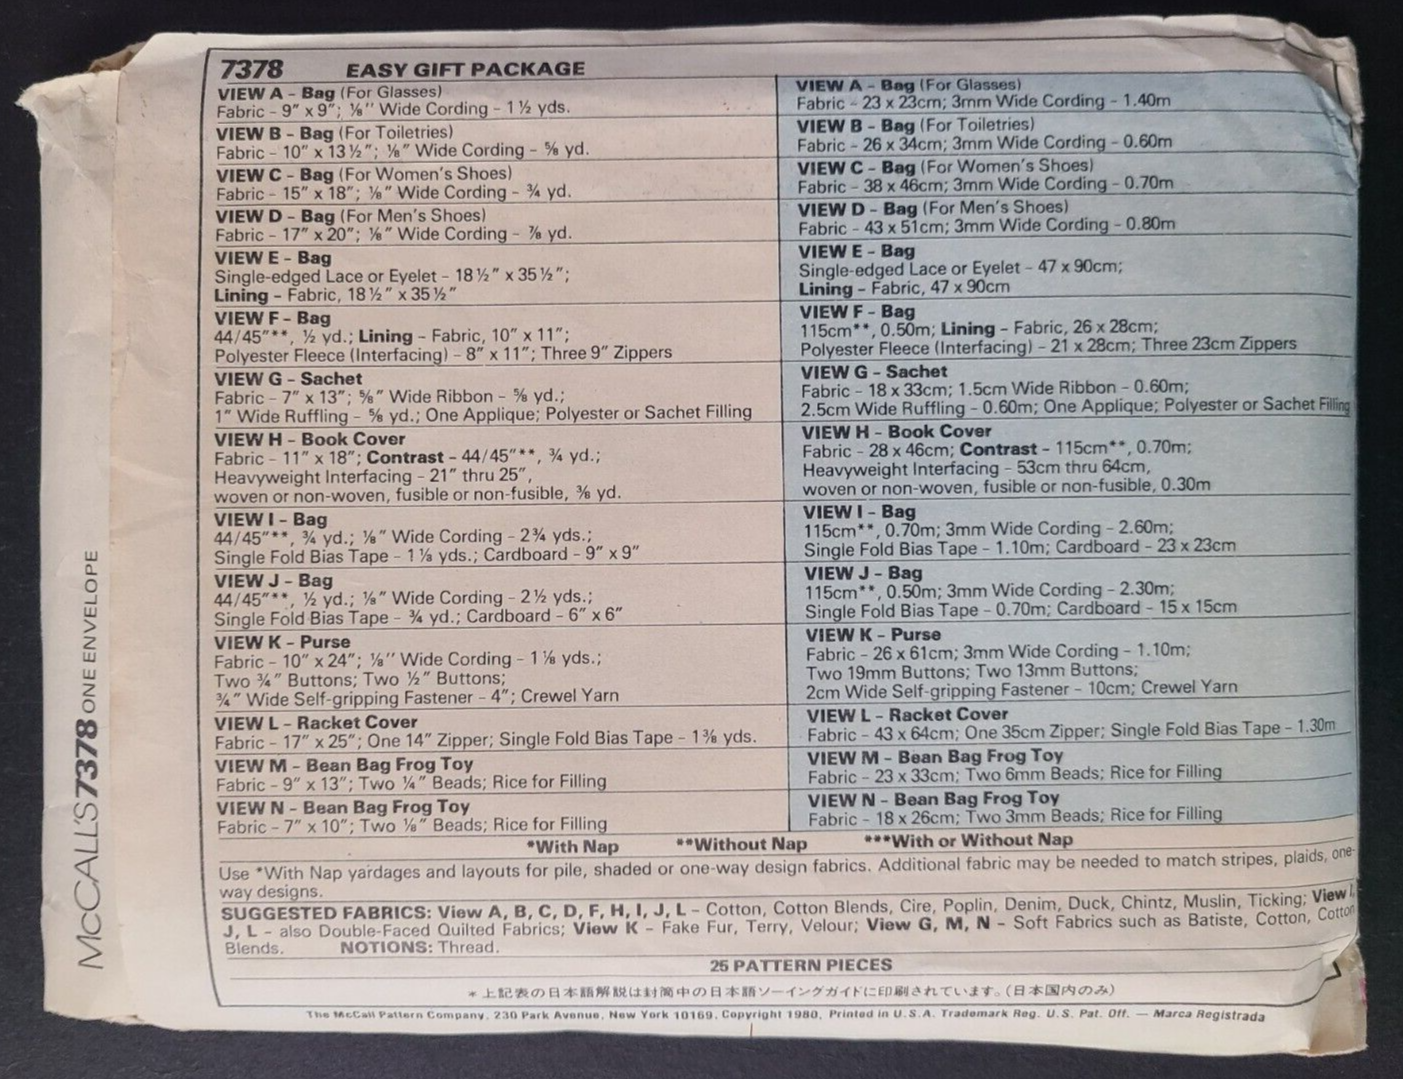 7378 EASY GIFT PACKAGE
VIEW A - Bag (For Glasses)
Fabric - 9" x 9"; ⅛'' Wide Cording - 1 ½ yds.
VIEW B - Bag (For Toiletries)
Fabric - 10" x 13 ½"; ⅛" Wide Cording - ⅝ yd.
VIEW C - Bag (For Women's Shoes)
Fabric - 15" x 18"; ⅛" Wide Cording - ¾ yd.
VIEW D - Bag (For Men's Shoes)
Fabric - 17" x 20"; ⅛" Wide Cording - ⅞ yd.
VIEW E - Bag
Single-edged Lace or Eyelet - 18 ½" x 35 ½";
Lining - Fabric, 18 ½" x 35 ½"
VIEW F - Bag
44/45"**, ½ yd.; Lining - Fabric, 10" x 11";
Polyester Fleece (Interfacing) - 8" x 11"; Three 9" Zippers
VIEW G - Sachet
Fabric - 7" x 13"; ⅝" Wide Ribbon - ⅝ yd.;
1" Wide Ruffling - ⅝ yd.; One Applique; Polyester or Sachet Filling
VIEW H - Book Cover
Fabric - 11" x 18"; Contrast - 44/45"**, ¾ yd.;
Heavyweight Interfacing - 21" thru 25",
woven or non-woven, fusible or non-fusible, ⅜ yd.
VIEW I - Bag
44/45"**, ¾ yd.; ⅛" Wide Cording - 2¾ yds.;
Single Fold Bias Tape - 1 ⅛ yds.; Cardboard - 9" x 9"
VIEW J - Bag
44/45"**, ½ yd.; ⅛" Wide Cording - 2½ yds.;
Single Fold Bias Tape - ¾ yd.; Cardboard - 6" x 6"
VIEW K - Purse
Fabric - 10" x 24"; ⅛'' Wide Cording - 1 ⅛ yds.;
Two ¾" Buttons; Two ½" Buttons;
¾" Wide Self-gripping Fastener - 4"; Crewel Yarn
VIEW L - Racket Cover
Fabric - 17" x 25"; One 14" Zipper; Single Fold Bias Tape - 1⅜ yds.
VIEW M - Bean Bag Frog Toy
Fabric - 9" x 13"; Two ¼" Beads; Rice for Filling
VIEW N - Bean Bag Frog Toy
Fabric - 7" x 10"; Two ⅛" Beads; Rice for Filling
VIEW A - Bag (For Glasses)
Fabric - 23 x 23cm; 3mm Wide Cording - 1.40m
VIEW B - Bag (For Toiletries)
Fabric - 26 x 34cm; 3mm Wide Cording - 0.60m
VIEW C - Bag (For Women's Shoes)
Fabric - 38 x 46cm; 3mm Wide Cording - 0.70m
VIEW D - Bag (For Men's Shoes)
Fabric - 43 x 51cm; 3mm Wide Cording - 0.80m
VIEW E - Bag
Single-edged Lace or Eyelet - 47 x 90cm;
Lining - Fabric, 47 x 90cm
VIEW F - Bag
115cm**, 0.50m; Lining - Fabric, 26 x 28cm;
Polyester Fleece (Interfacing) - 21 x 28cm; Three 23cm Zippers
VIEW G - Sachet
Fabric - 18 x 33cm; 1.5cm Wide Ribbon - 0.60m;
2.5cm Wide Ruffling - 0.60m; One Applique; Polyester or Sachet Filling
VIEW H - Book Cover
Fabric - 28 x 46cm; Contrast - 115cm**, 0.70m;
Heavyweight Interfacing - 53cm thru 64cm,
woven or non-woven, fusible or non-fusible, 0.30m
VIEW I - Bag
115cm**, 0.70m; 3mm Wide Cording - 2.60m;
Single Fold Bias Tape - 1.10m; Cardboard - 23 x 23cm
VIEW J - Bag
115cm**, 0.50m; 3mm Wide Cording - 2.30m;
Single Fold Bias Tape - 0.70m; Cardboard - 15 x 15cm
VIEW K - Purse
Fabric - 26 x 61cm; 3mm Wide Cording - 1.10m;
Two 19mm Buttons; Two 13mm Buttons;
2cm Wide Self-gripping Fastener - 10cm; Crewel Yarn
VIEW L - Racket Cover
Fabric - 43 x 64cm; One 35cm Zipper; Single Fold Bias Tape - 1.30m
VIEW M - Bean Bag Frog Toy
Fabric - 23 x 33cm; Two 6mm Beads; Rice for Filling
VIEW N - Bean Bag Frog Toy
Fabric - 18 x 26cm; Two 3mm Beads; Rice for Filling
*With Nap **Without Nap ***With or Without Nap
Use *With Nap yardages and layouts for pile, shaded or one-way design fabrics. Additional fabric may be needed to match stripes, plaids, one-
way designs.
SUGGESTED FABRICS: View A, B, C, D, F, H, I, J, L - Cotton, Cotton Blends, Cire, Poplin, Denim, Duck, Chintz, Muslin, Ticking; View I,
J, L - also Double-Faced Quilted Fabrics; View K - Fake Fur, Terry, Velour; View G, M, N - Soft Fabrics such as Batiste, Cotton, Cotton
Blends. NOTIONS: Thread.
25 PATTERN PIECES
*上記表の日本語解説は封筒中の日本語ソーイングガイドに印刷されています。(日本国内のみ)
The McCall Pattern Company, 230 Park Avenue, New York 10169, Copyright 1980, Printed in U.S.A. Trademark Reg. U.S. Pat. Off. — Marca Registrada
McCALL'S 7378 ONE ENVELOPE